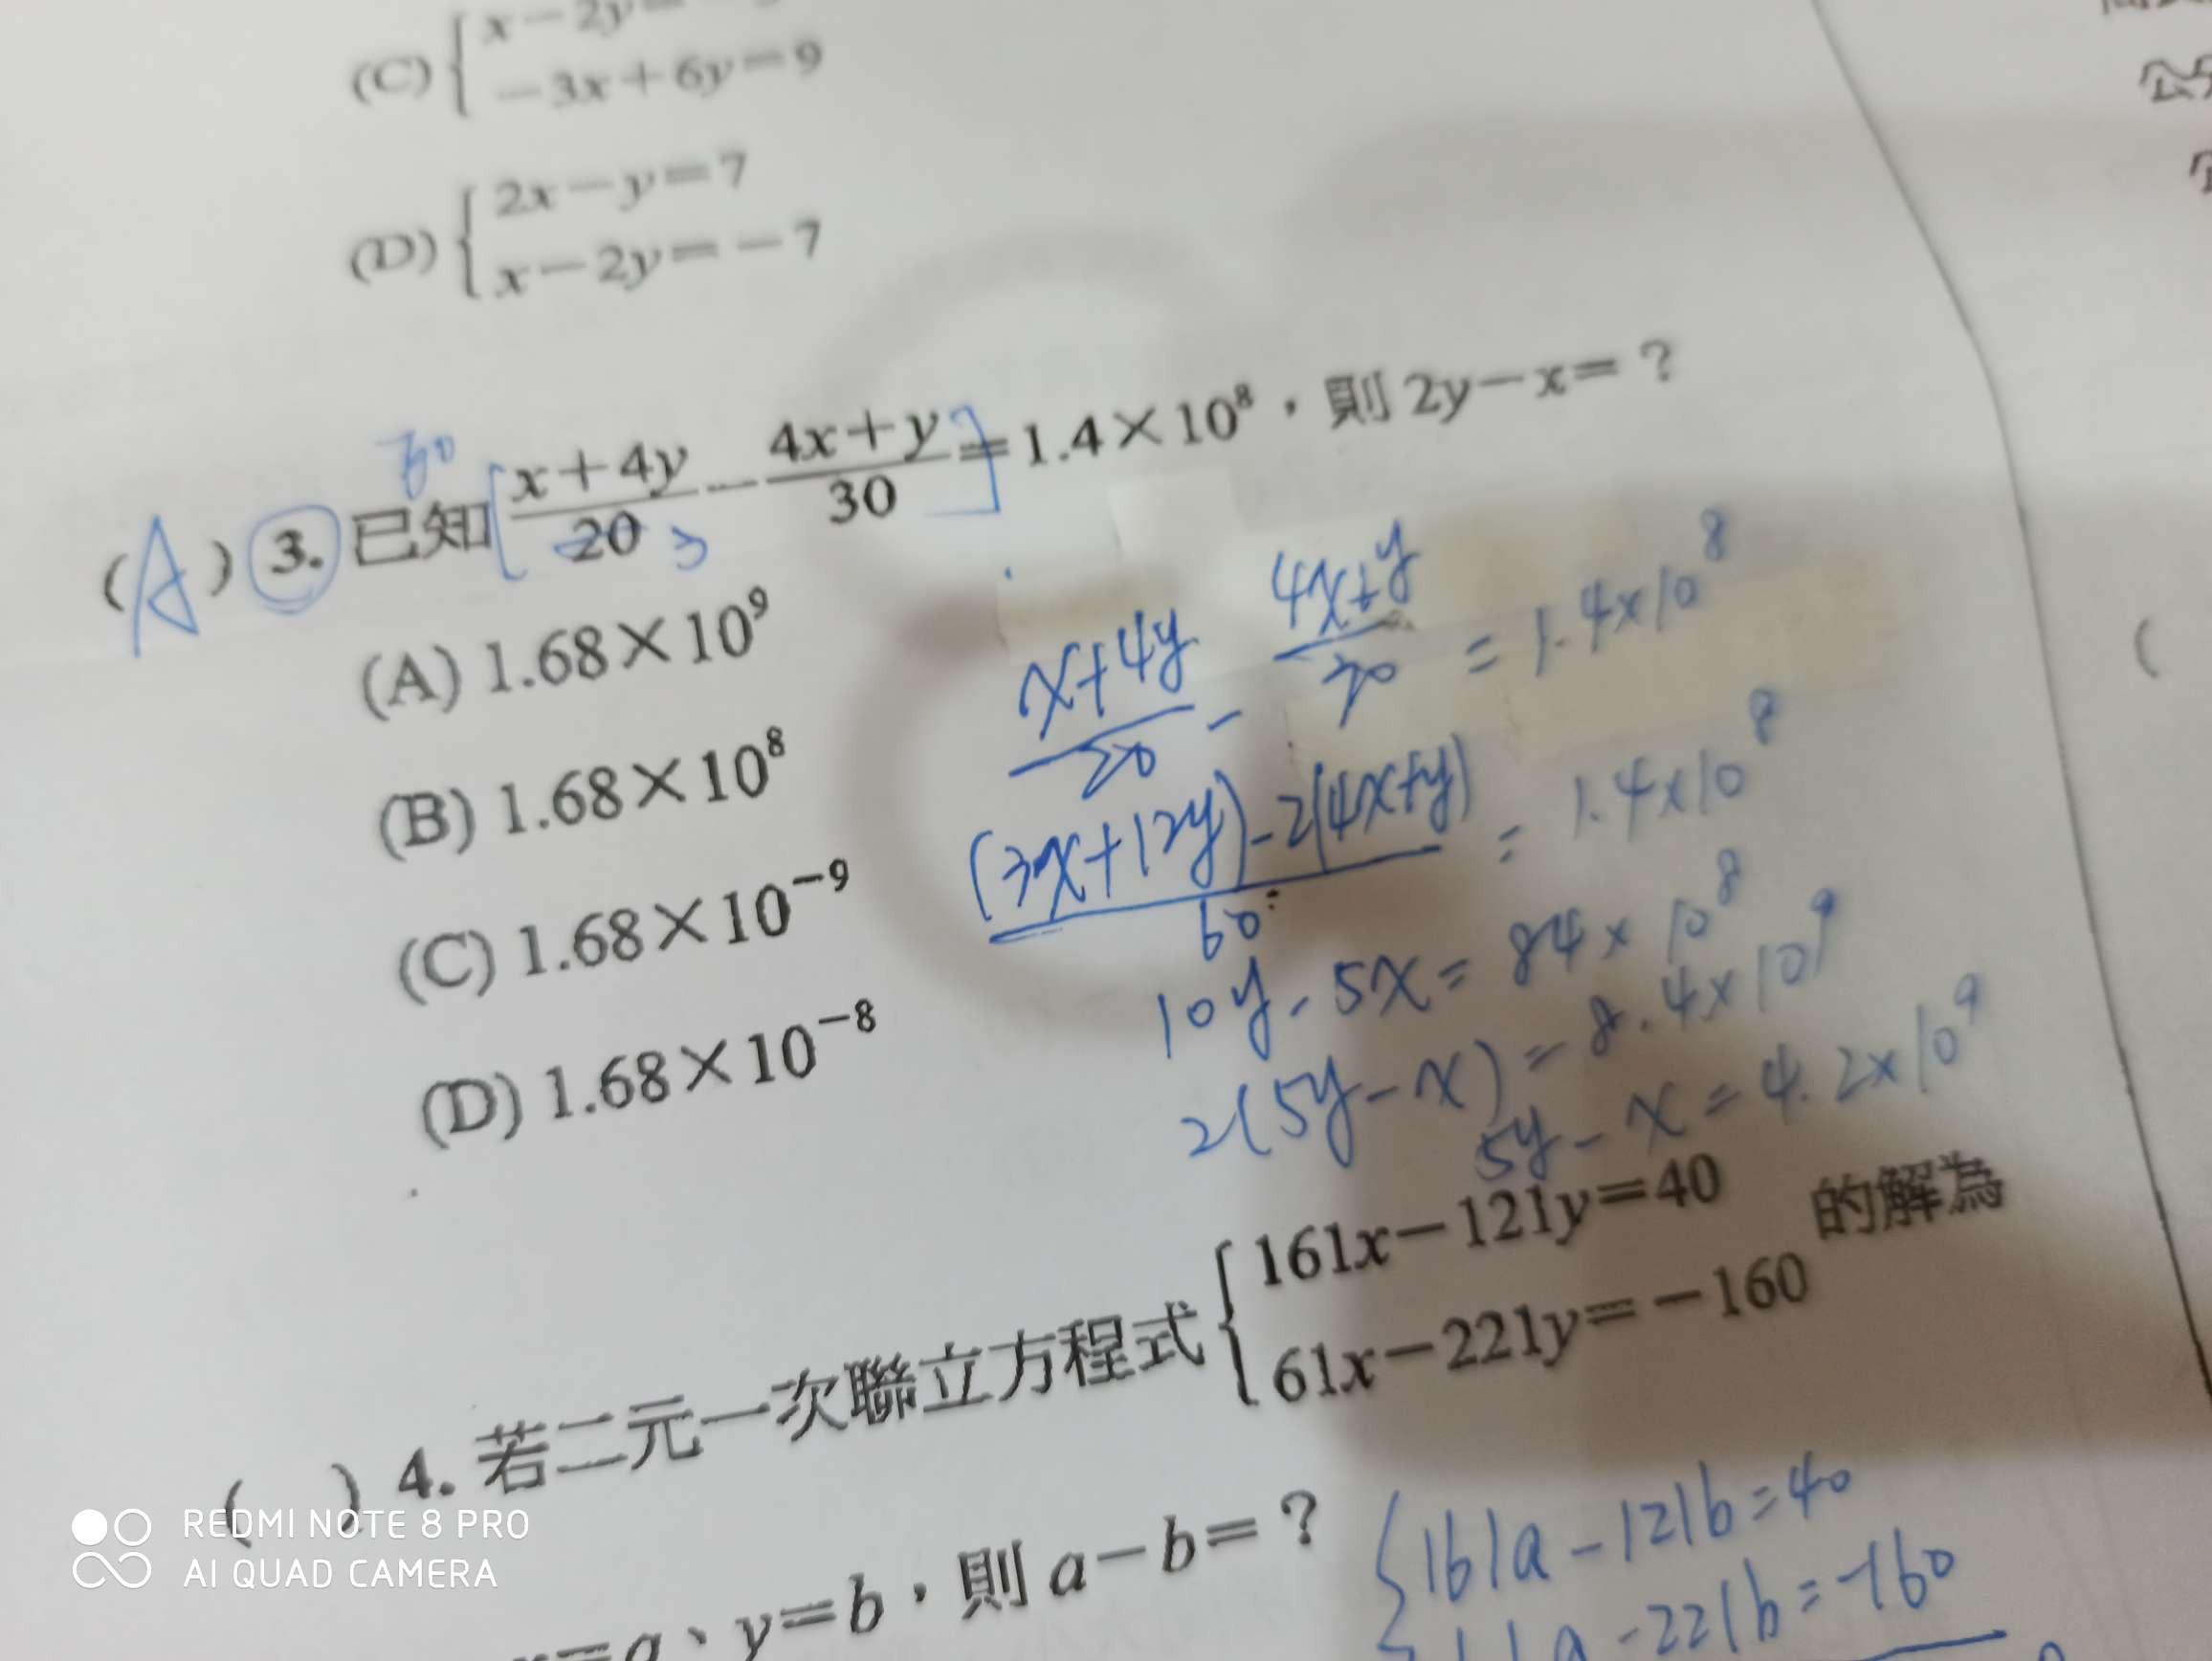 (C) { x－2y＝
－3x＋6y＝9
(D) { 2x－y＝7
x－2y＝－7
(A) 3. 已知 [ \frac{x＋4y}{20} － \frac{4x＋y}{30} ] ＝1.4×10⁸，則 2y－x＝？
60
3
(A) 1.68×10⁹
(B) 1.68×10⁸
(C) 1.68×10⁻⁹
(D) 1.68×10⁻⁸
\frac{x+4y}{20} - \frac{4x+y}{30} = 1.4×10⁸
\frac{(3x+12y)-2(4x+y)}{60} = 1.4×10⁸
10y-5x = 84×10⁸
2(5y-x) = 8.4×10⁹
5y-x = 4.2×10⁹
( ) 4. 若二元一次聯立方程式 { 161x－121y＝40
61x－221y＝－160 的解為
x＝a、y＝b，則 a－b＝？
{ 161a-121b=40
61a-221b=-160
公
(
REDMI NOTE 8 PRO
AI QUAD CAMERA